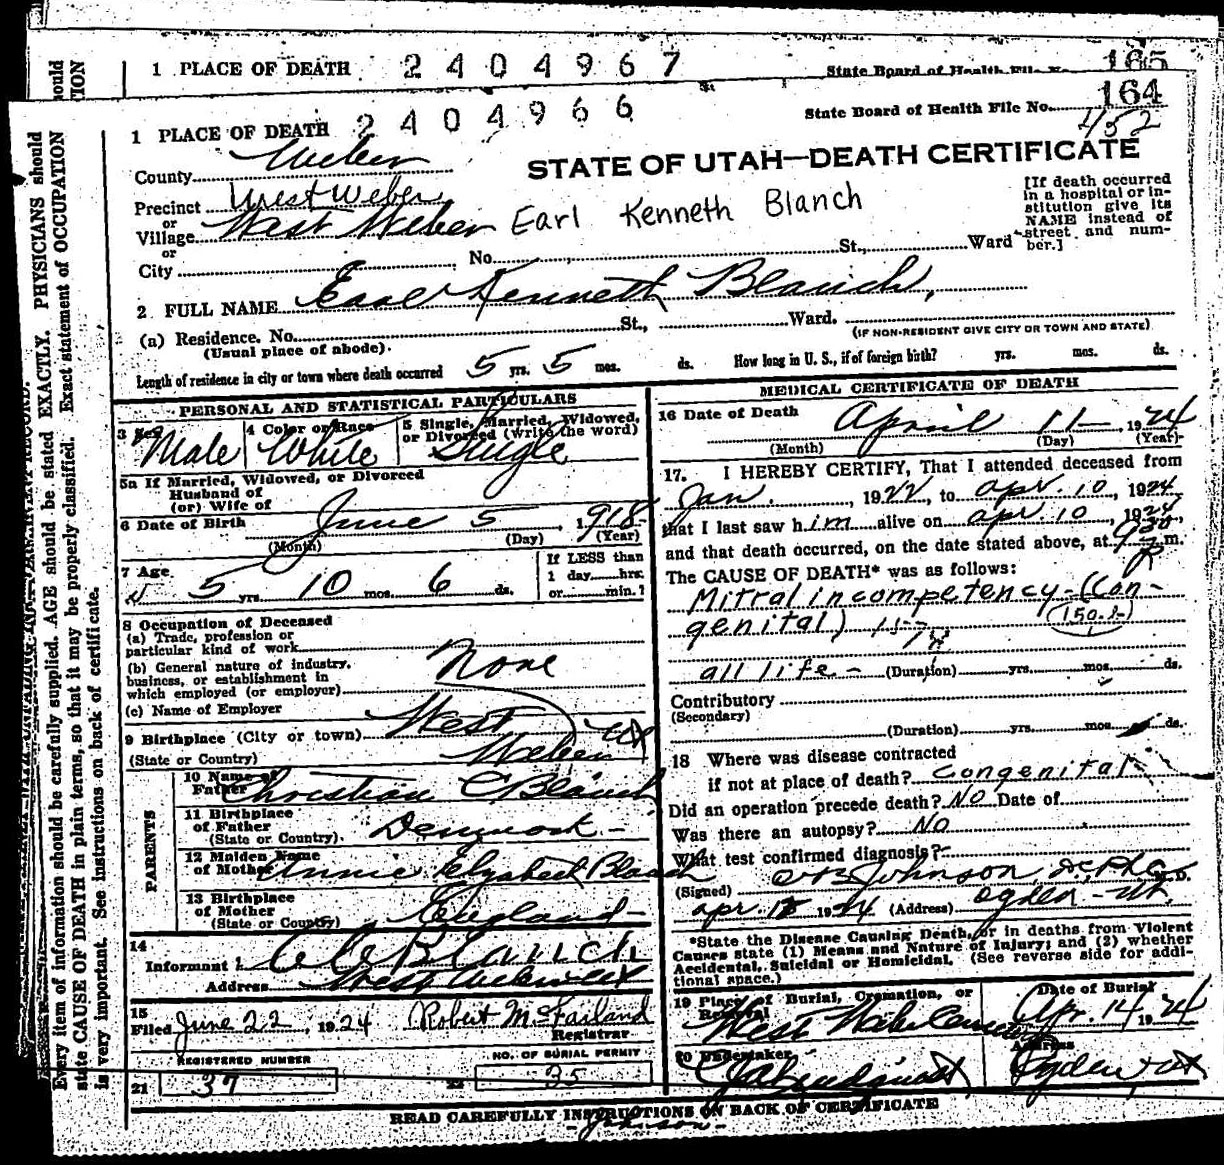 1 PLACE OF DEATH 2404967 State Board of Health File No. 165
1 PLACE OF DEATH 2404966 State Board of Health File No. 164
452
STATE OF UTAH—DEATH CERTIFICATE
County Weber
Precinct West Weber
or
Village West Weber Earl Kenneth Blanch
or
City No. St., Ward
[If death occurred
in a hospital or in-
stitution give its
NAME instead of
street and num-
ber.]
2 FULL NAME Earl Kenneth Blanch,
(a) Residence. No. St., Ward.
(Usual place of abode). (IF NON-RESIDENT GIVE CITY OR TOWN AND STATE)
Length of residence in city or town where death occurred 5 yrs. 5 mos. ds. How long in U. S., if of foreign birth? yrs. mos. ds.
PERSONAL AND STATISTICAL PARTICULARS
3 Sex Male
4 Color or Race White
5 Single, Married, Widowed,
or Divorced (write the word)
Single
5a If Married, Widowed, or Divorced
Husband of
(or) Wife of
6 Date of Birth June 5, 1918
(Month) (Day) (Year)
7 Age 5 yrs. 10 mos. 6 ds.
If LESS than
1 day hrs.
or min.?
8 Occupation of Deceased
(a) Trade, profession or
particular kind of work
(b) General nature of industry.
business, or establishment in
which employed (or employer)
None
(c) Name of Employer
9 Birthplace (City or town) West Weber Ut
(State or Country)
PARENTS
10 Name of
Father Christian C Blanch
11 Birthplace
of Father
(State or Country). Denmark -
12 Maiden Name
of Mother Annie Elyzabeth Blanch
13 Birthplace
of Mother
(State or Country) England -
14
Informant C C Blanch
Address West Weber Ut
15
Filed June 22, 1924 Robert McFarland
Registrar
REGISTERED NUMBER NO. OF BURIAL PERMIT
21 37 22 35
MEDICAL CERTIFICATE OF DEATH
16 Date of Death April 11 - 1924
(Month) (Day) (Year)
17. I HEREBY CERTIFY, That I attended deceased from
Jan. , 1922, to apr. 10, 1924
that I last saw him alive on apr. 10, 1924,
and that death occurred, on the date stated above, at 930 P m.
The CAUSE OF DEATH* was as follows:
Mitral incompetency - (Con-
genital)
all life - (Duration) yrs. mos. ds.
Contributory
(Secondary)
(Duration) yrs. mos. ds.
18 Where was disease contracted
if not at place of death? Congenital -
Did an operation precede death? No Date of
Was there an autopsy? No
What test confirmed diagnosis?
(Signed) Johnson, M.D.
apr. 1924 (Address) Ogden - Ut.
*State the Disease Causing Death, or in deaths from Violent
Causes state (1) Means and Nature of Injury; and (2) whether
Accidental, Suicidal or Homicidal. (See reverse side for addi-
tional space.)
19 Place of Burial, Cremation, or
Removal
West Weber Cemetery
Date of Burial
Apr. 14 1924
20 Undertaker
J A Lindquist
Address
Ogden, Ut
READ CAREFULLY INSTRUCTIONS ON BACK OF CERTIFICATE
Johnson -
Every item of information should be carefully supplied. AGE should be stated EXACTLY. PHYSICIANS should
state CAUSE OF DEATH in plain terms, so that it may be properly classified. Exact statement of OCCUPATION
is very important. See instructions on back of certificate.